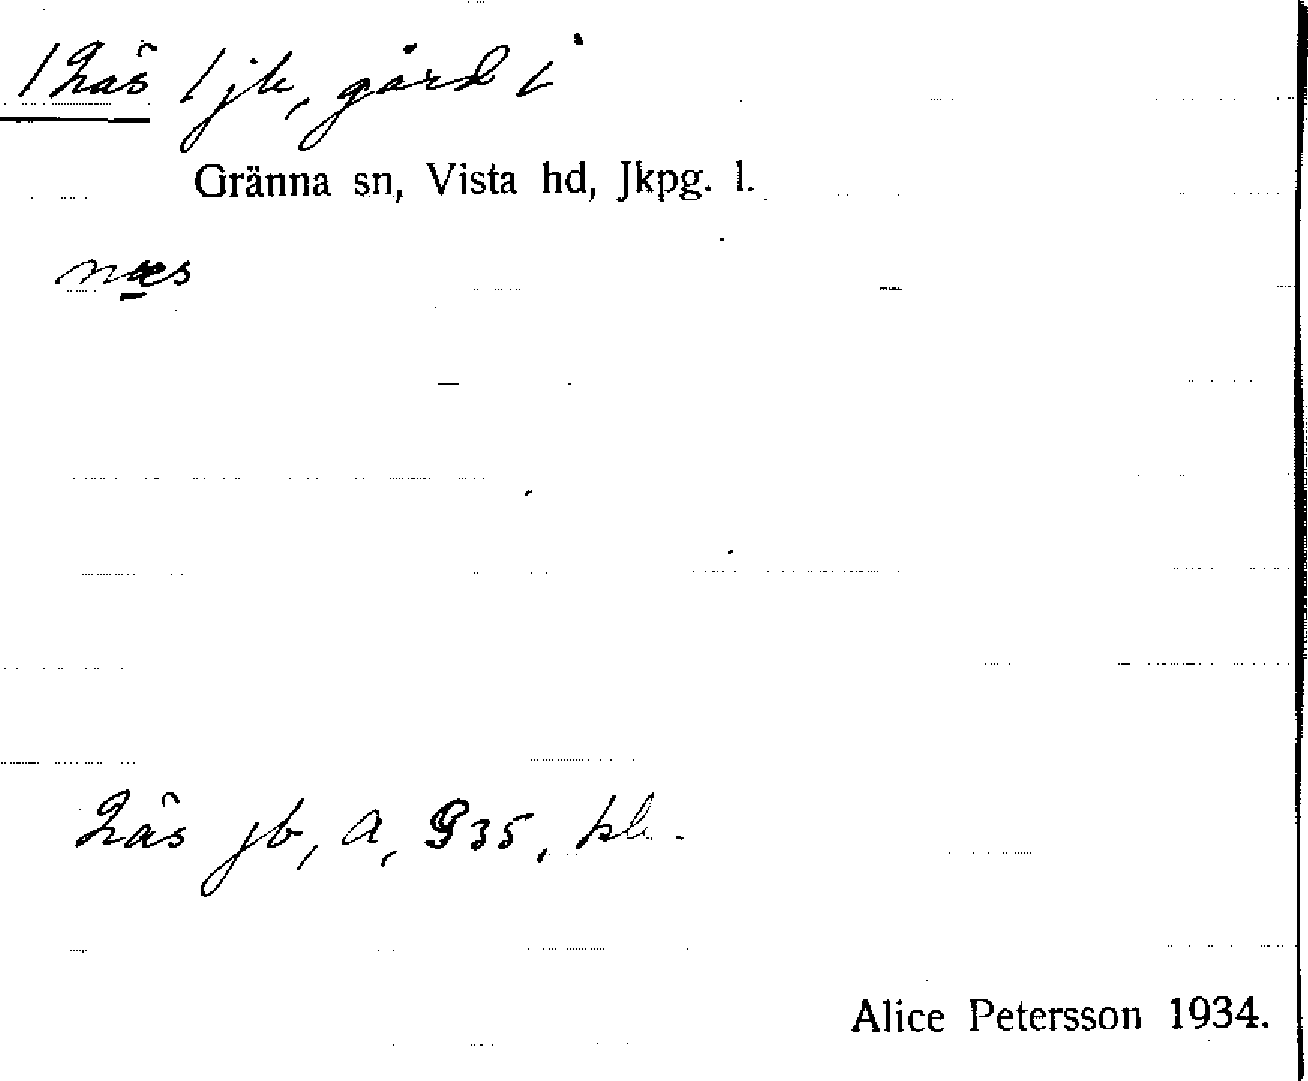 /Näs/ jb, gård i
Gränna sn, Vista hd, Jkpg. l.
næs
Näs jb, A, G35, kb.
Alice Petersson 1934.